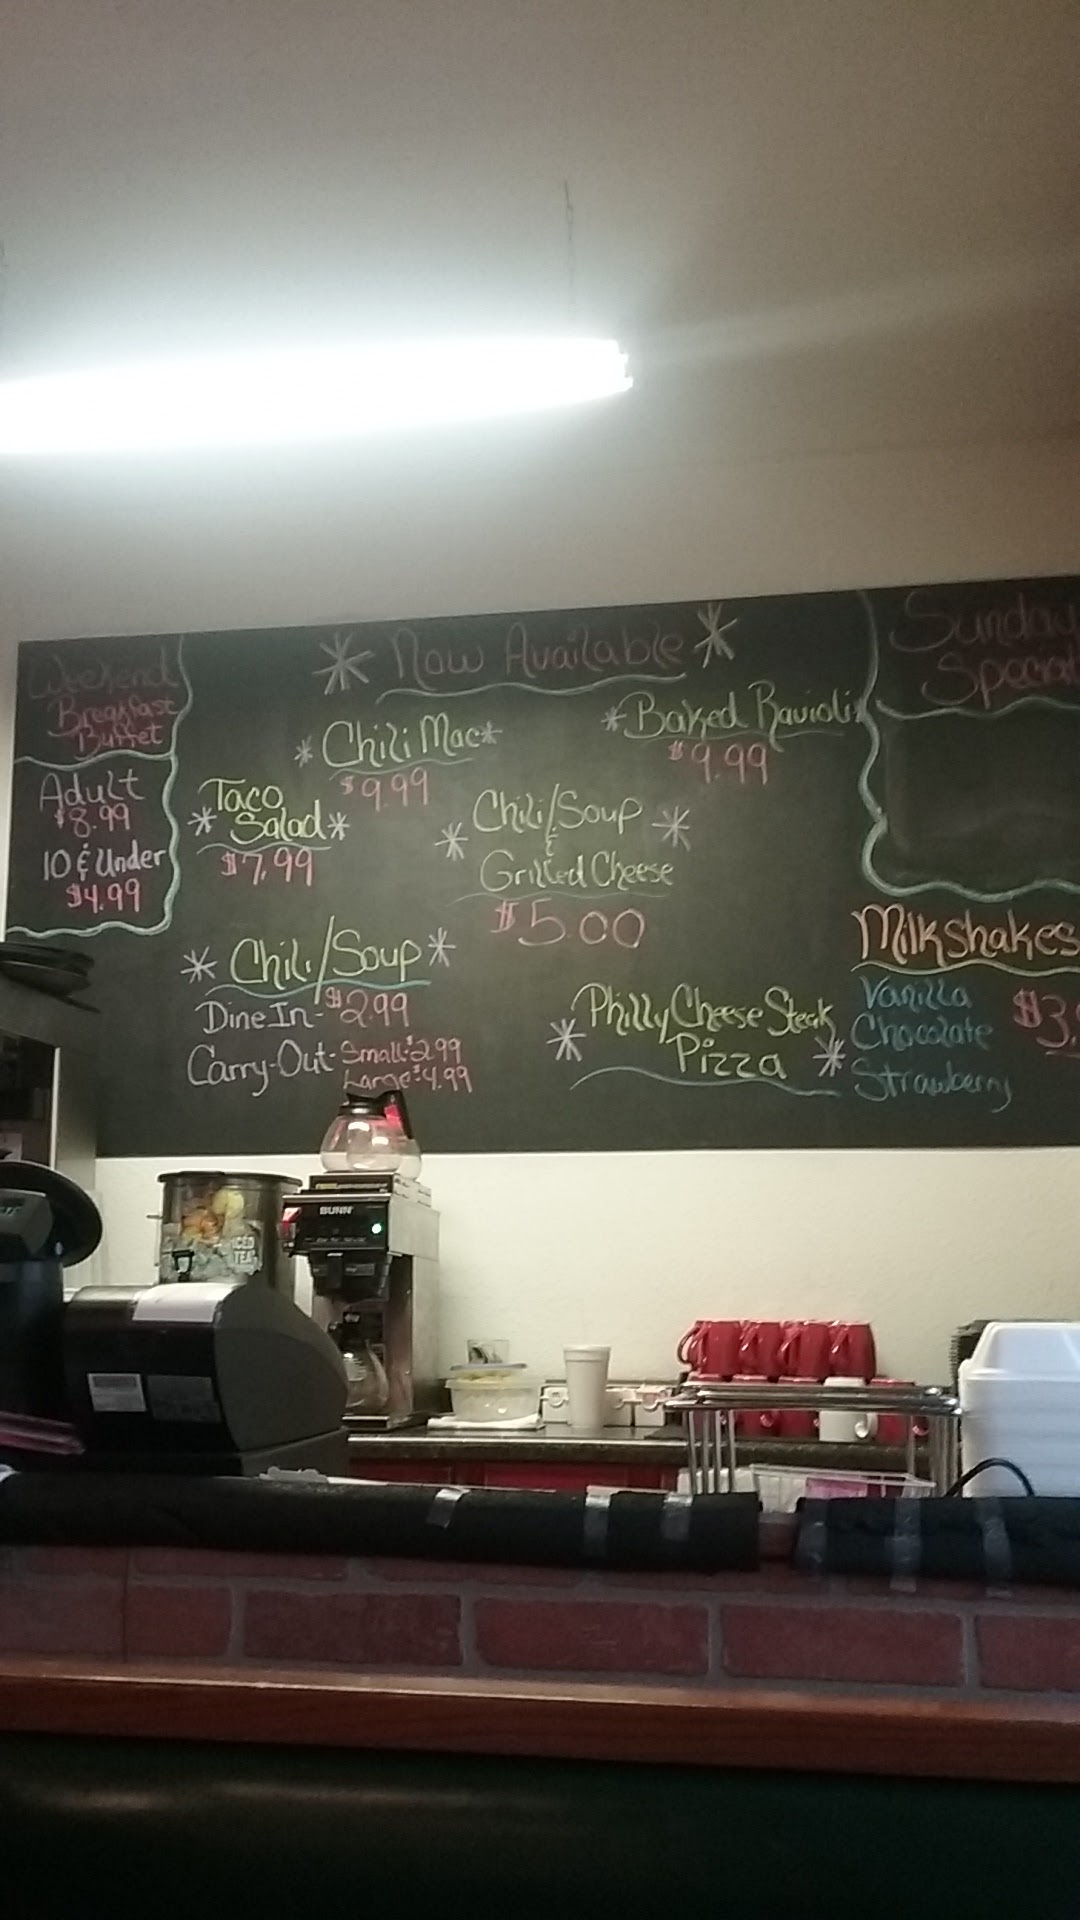 Weekend
Breakfast
Buffet
Adult
$8.99
10 & Under
$4.99
Now Available
Chili Mac
$9.99
Baked Ravioli
$9.99
Taco
Salad
$7.99
Chili/Soup
&
Grilled Cheese
$5.00
Chili/Soup
Dine In - $2.99
Carry-Out - Small: $2.99
Large: $4.99
Philly Cheese Steak
Pizza
Sunday
Special
Milkshakes
Vanilla
Chocolate
Strawberry
$3.
BUNN
ICED
TEA